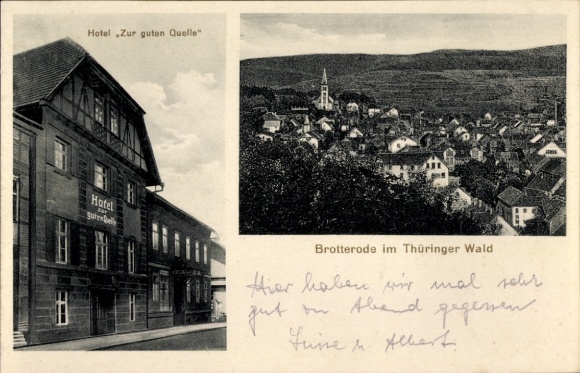 Hotel „Zur guten Quelle"
Hotel
zur
guten Quelle
Brotterode im Thüringer Wald
Hier haben wir mal sehr
gut zu Abend gegessen
Luise u. Albert.